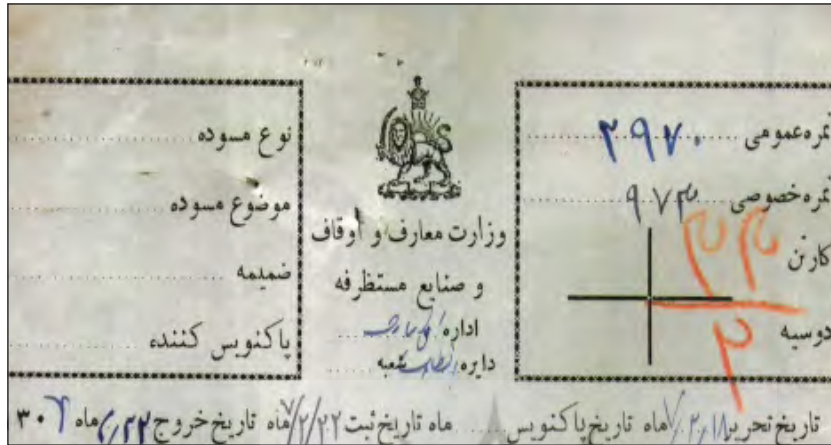 نمره عمومی ۲۹۷۰
نمره خصوصی ۹۷۳
کارتن ۲۳
دوسیه ۲
وزارت معارف و اوقاف
و صنایع مستظرفه
اداره
دایره شعبه
نوع مسوده
موضوع مسوده
ضمیمه
پاکنویس کننده
تاریخ تحریر ماه تاریخ پاکنویس ماه تاریخ ثبت ۲۲/۲/۷ ماه تاریخ خروج ماه ۳۰